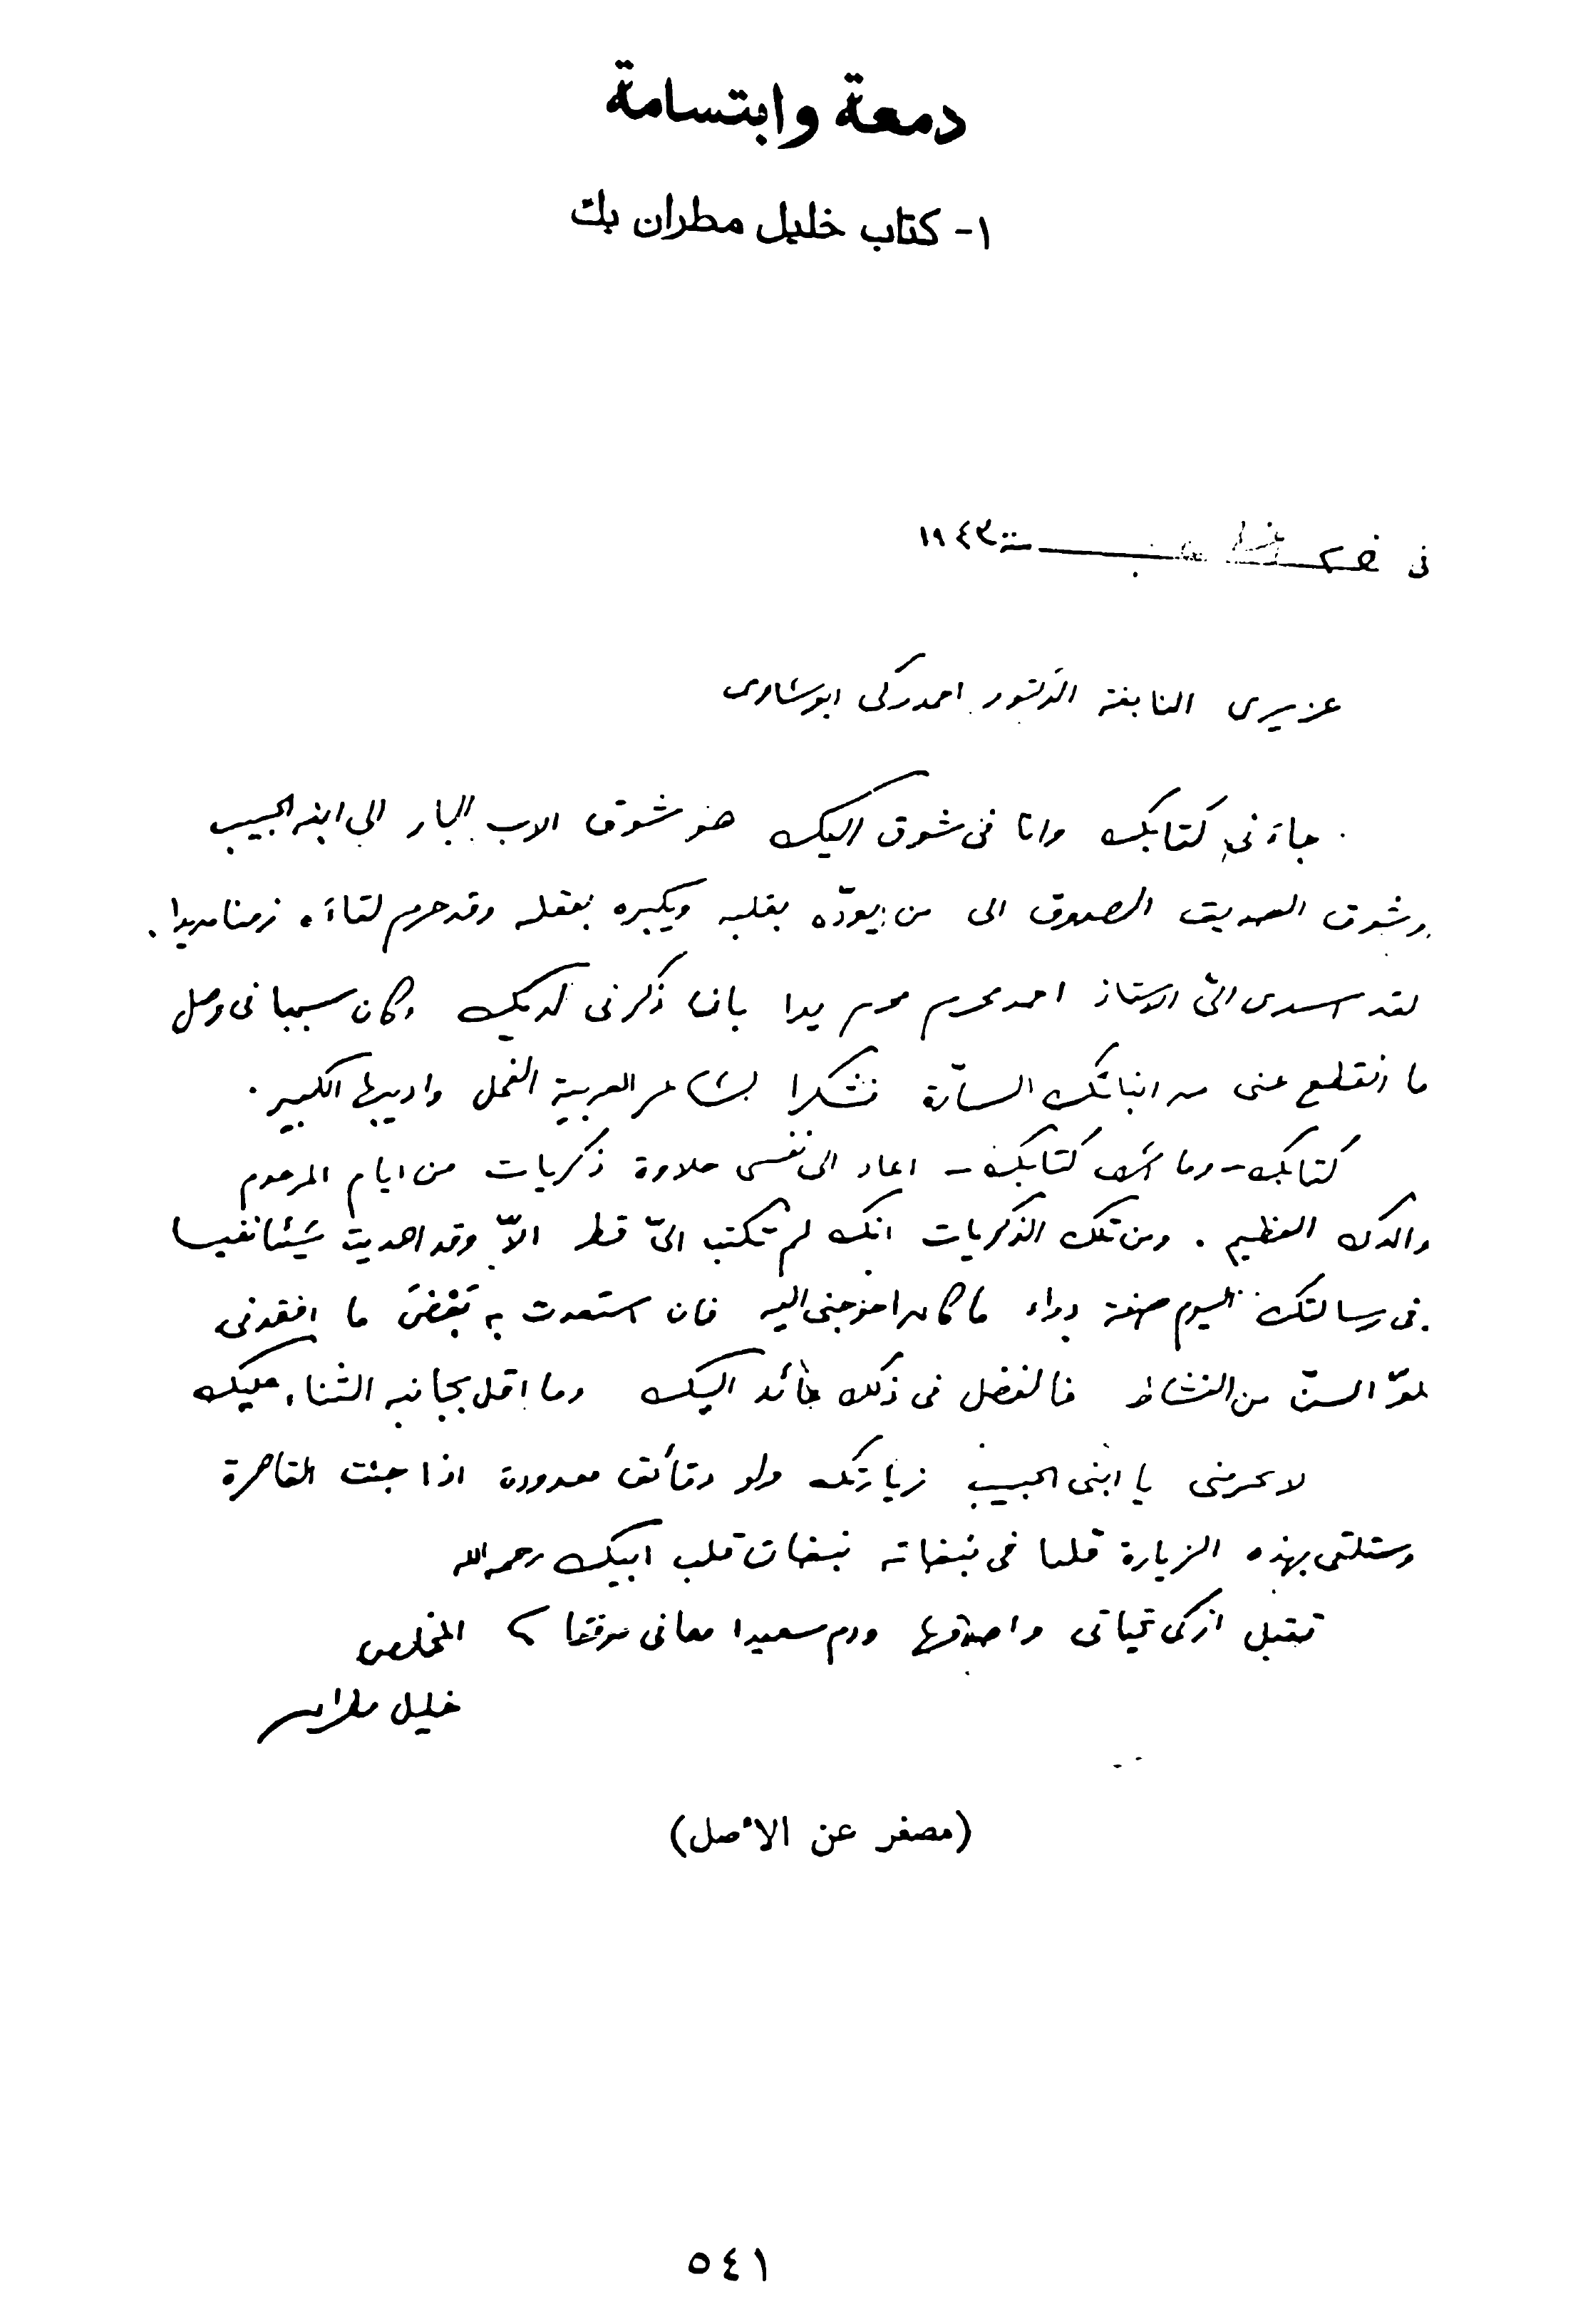 دمعة وابتسامة
١- كتاب خليل مطران بك
فى سنة ١٩٤٣
عزيزى النابغة الدكتور احمد زكى ابو شادى
جاءنى كتابك وانا فى شوق اليك هو شوق الاب البار الى ابنه الحبيب
وشوق الصديق الصدوق الى من يودّه بقلبه ويكبره بعقله وقد حرم لقاءه زمنا مديدا.
لقد اسدى الىّ الاستاذ احمد محرم يدا بان ذكرنى لديك وكان سببا فى وصل
ما انقطع عنى من انبائك السارّة فشكرا لشاعر العربية الفحل واديبها الكبير.
كتابك - وما كتابك - اعاد الى نفسى حلاوة ذكريات من ايام المرحوم
والدك العظيم. ومن تلك الذكريات انك لم تكتب الىّ قط الاّ وقد اهديت شيئا نفيسا
فى رسالتك اليوم دواء ما كان احوجنى اليه فان استعدت به بعض ما افقدنى
علوّ السنّ من النشاط فالفضل فى ذلك عائد اليك وما اقل بجانبه الثناء عليك
لا تحرمنى يا ابنى الحبيب زيارتك ولو دقائق معدودة اذا جئت القاهرة
وستلقى بهذه الزيارة قلبا فى نبضاته نبضات قلب ابيك رحمه الله
تقبل ازكى تحياتى واصدقها ودم سعيدا معافى موفقا المخلص
خليل مطران
(مصغر عن الأصل)
٥٤١